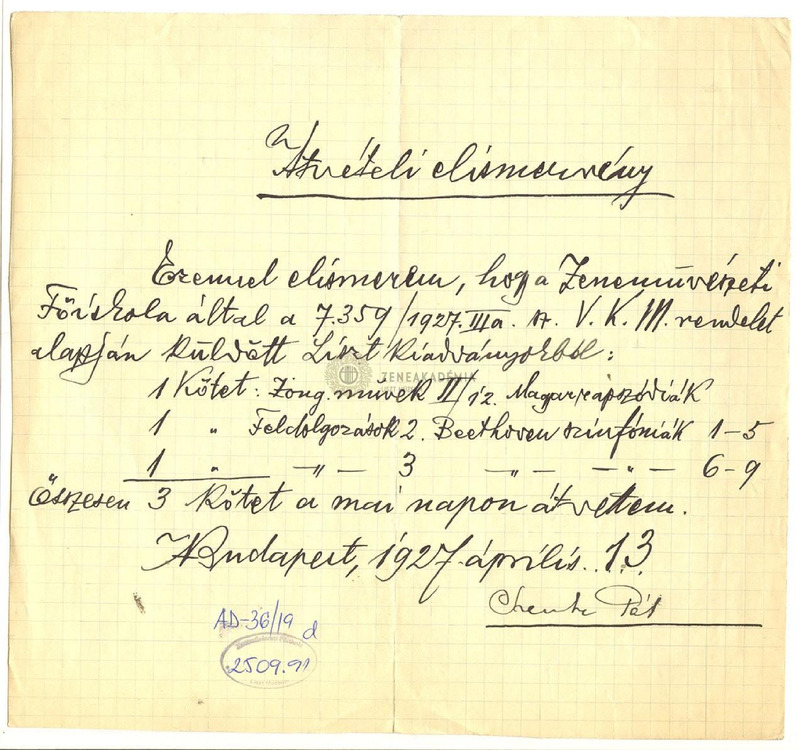 Átvételi elismervény
Ezennel elismerem, hogy a Zeneművészeti
Főiskola által a 7.359/1927.IIIa. sz. V. K. M. rendelet
alapján küldött Liszt kiadványokból:
ZENEAKADÉMIA
1 Kötet: Zong. művek II/12. Magyar rapszódiák
1 " Feldolgozások 2. Beethoven szinfóniák 1-5
1 " -"- 3 -"- -"- 6-9
Összesen 3 kötet a mai napon átvettem.
Budapest, 1927. április. 13.
Pál
AD-36/19 d
2509.91